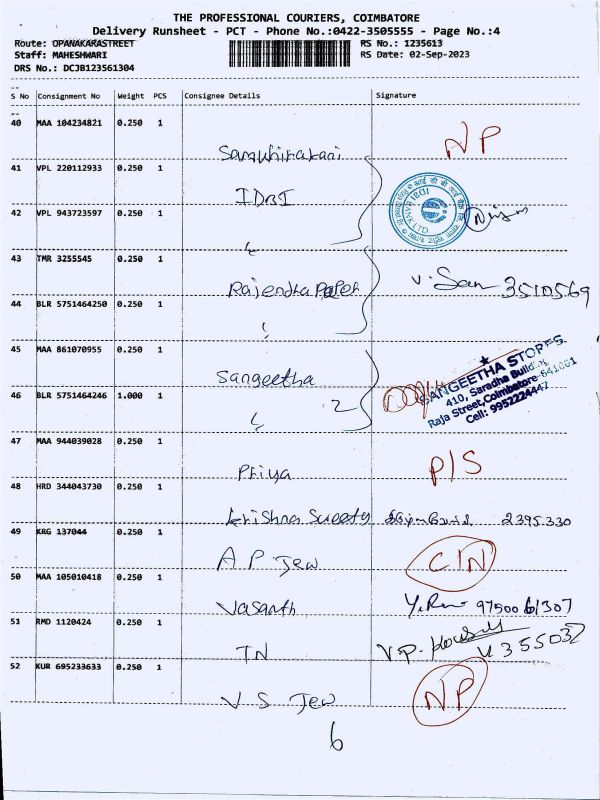 THE PROFESSIONAL COURIERS, COIMBATORE
Delivery Runsheet - PCT - Phone No.:0422-3505555 - Page No.:4
Route: OPANAKARASTREET
RS No.: 1235613
Staff: MAHESHWARI
RS Date: 02-Sep-2023
DRS No.: DCJB123561304
S No Consignment No Weight PCS Consignee Details Signature
40 MAA 104234821 0.250 1
NP
41 VPL 220112933 0.250 1
IDBI
IDBI BANK LTD.
42 VPL 943723597 0.250 1
43 TMR 3255545 0.250 1
Rajendra Paper V. San 3510569
44 BLR 5751464250 0.250 1
45 MAA 861070955 0.250 1
Sangeetha
SANGEETHA STORES
410, Saradha Building
Raja Street, Coimbatore-641001
Cell: 9952224442
46 BLR 5751464246 1.000 1
2
47 MAA 944039028 0.250 1
Priya P/S
48 HRD 344043730 0.250 1
Krishna Sweets 2395330
49 KRG 137044 0.250 1
A P Jew C/N
50 MAA 105010418 0.250 1
Vasanth 97500 61307
51 RMD 1120424 0.250 1
TN V.P.
52 KUR 695233633 0.250 1
V S Jew NP
6